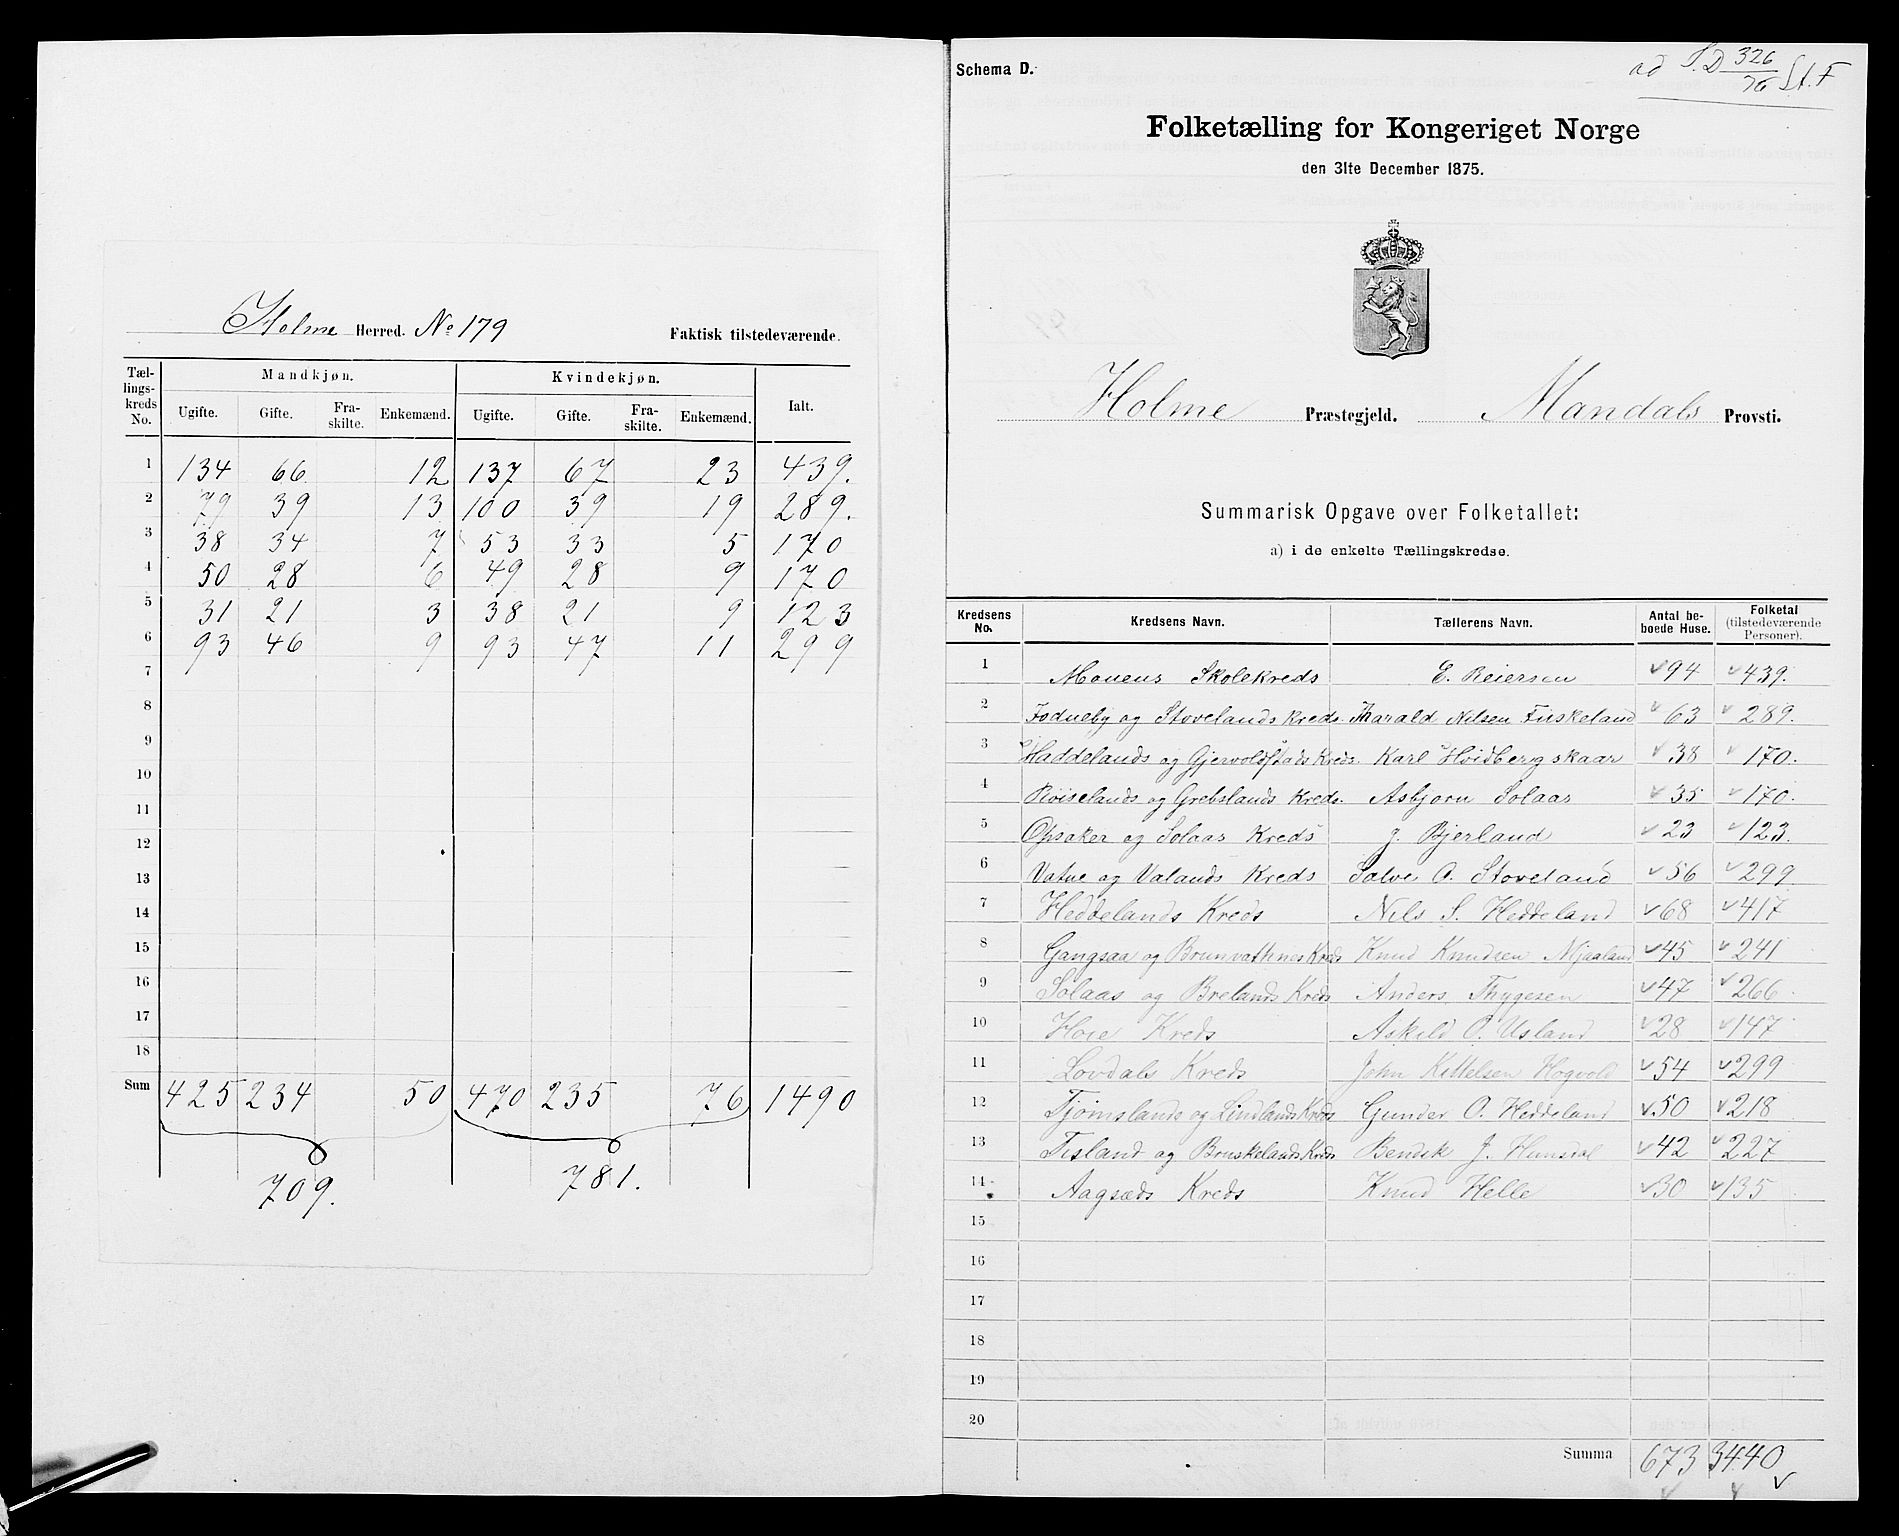 Holme Herred. No 179 Faktisk tilstedeværende.
Tællingskreds No. Mandkjøn. Kvindekjøn. Ialt.
Ugifte. Gifte. Fraskilte. Enkemænd. Ugifte. Gifte. Fraskilte. Enkemænd.
1 134 66 12 137 67 23 439.
2 79 39 13 100 39 19 289.
3 38 34 7 53 33 5 170
4 50 28 6 49 28 9 170
5 31 21 3 38 21 9 123
6 93 46 9 93 47 11 299
7
8
9
10
11
12
13
14
15
16
17
18
Sum 425 234 50 470 235 76 1490
709. 781.
Schema D.
ad S.D 326/76 St. F
Folketælling for Kongeriget Norge
den 31te December 1875.
Holme Præstegjeld. Mandals Provsti.
Summarisk Opgave over Folketallet:
a) i de enkelte Tællingskredse.
Kredsens No. Kredsens Navn. Tællerens Navn. Antal beboede Huse. Folketal (tilstedeværende Personer).
1 Monens Skolekreds E. Reiersen 94 439.
2 Fodneby og Stovelands Kreds. Tharald Nilsen Fuskeland 63 289.
3 Haddelands og Gjervoldstads Kreds. Karl Hvidbergskaar 38 170.
4 Røiselands og Grebslands Kreds. Asbjorn Solaas 35 170.
5 Opsaker og Solaas Kreds J. Bjerland 23 123.
6 Vatne og Valands Kreds Salve O. Stoveland 56 299.
7 Heddelands Kreds Nils S. Heddeland 68 417
8 Gangsaa og Brunvathnes Kreds Knud Knudsen Mjaaland 45 241
9 Solaas og Brelands Kreds Anders Thygesen 47 266.
10 Hoie Kreds Askild O. Usland 28 147
11 Lovdals Kreds John Kittelsen Høgvold 54 299
12 Tjomslands og Lindlands Kreds Gunder O. Heddeland 50 218
13 Tisland og Bruskelands Kreds Bendik J. Hunsdal 42 227
14 Aagsæds Kreds Knud Helle 30 135
15
16
17
18
19
20
Summa 673 3440